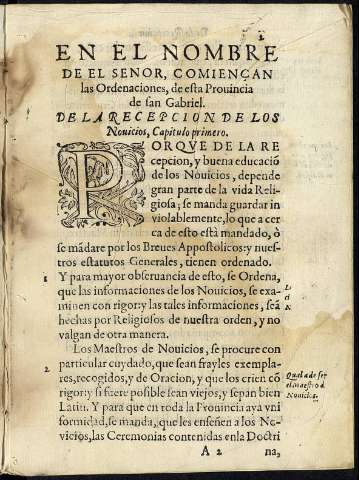 EN EL NOMBRE
DE EL SENOR, COMIENÇAN
las Ordenaciones, de esta Prouincia
de san Gabriel.
DE LA RECEPCION DE LOS
Nouicios, Capitulo primero.
PORQVE DE LA RE
cepcion, y buena educació
de los Nouicios, depende
gran parte de la vida Reli-
giosa; se manda guardar in
violablemente, lo que a cer
ca de esto està mandado, ò
se mãdare por los Breues Appostolicos: y nues-
tros estatutos Generales, tienen ordenado.
1 Y para mayor obseruancia de esto, se Ordena,
que las informaciones de los Nouicios, se exa-
minen con rigor: y las tales informaciones, seã
hechas por Religiosos de nuestra orden, y no
valgan de otra manera.
Los Maestros de Nouicios, se procure con
2 particular cuydado, que sean frayles exempla-
res, recogidos, y de Oracion, y que los crien cõ
rigor: y si fuere posible sean viejos, y sepan bien
Latin. Y para que en toda la Prouincia aya vni
formidad, se manda, que les enseñen a los No-
uicios, las Ceremonias contenidas en la Doctri
Qual a de ser
el maestro d
Nouicios.
A 2 na,